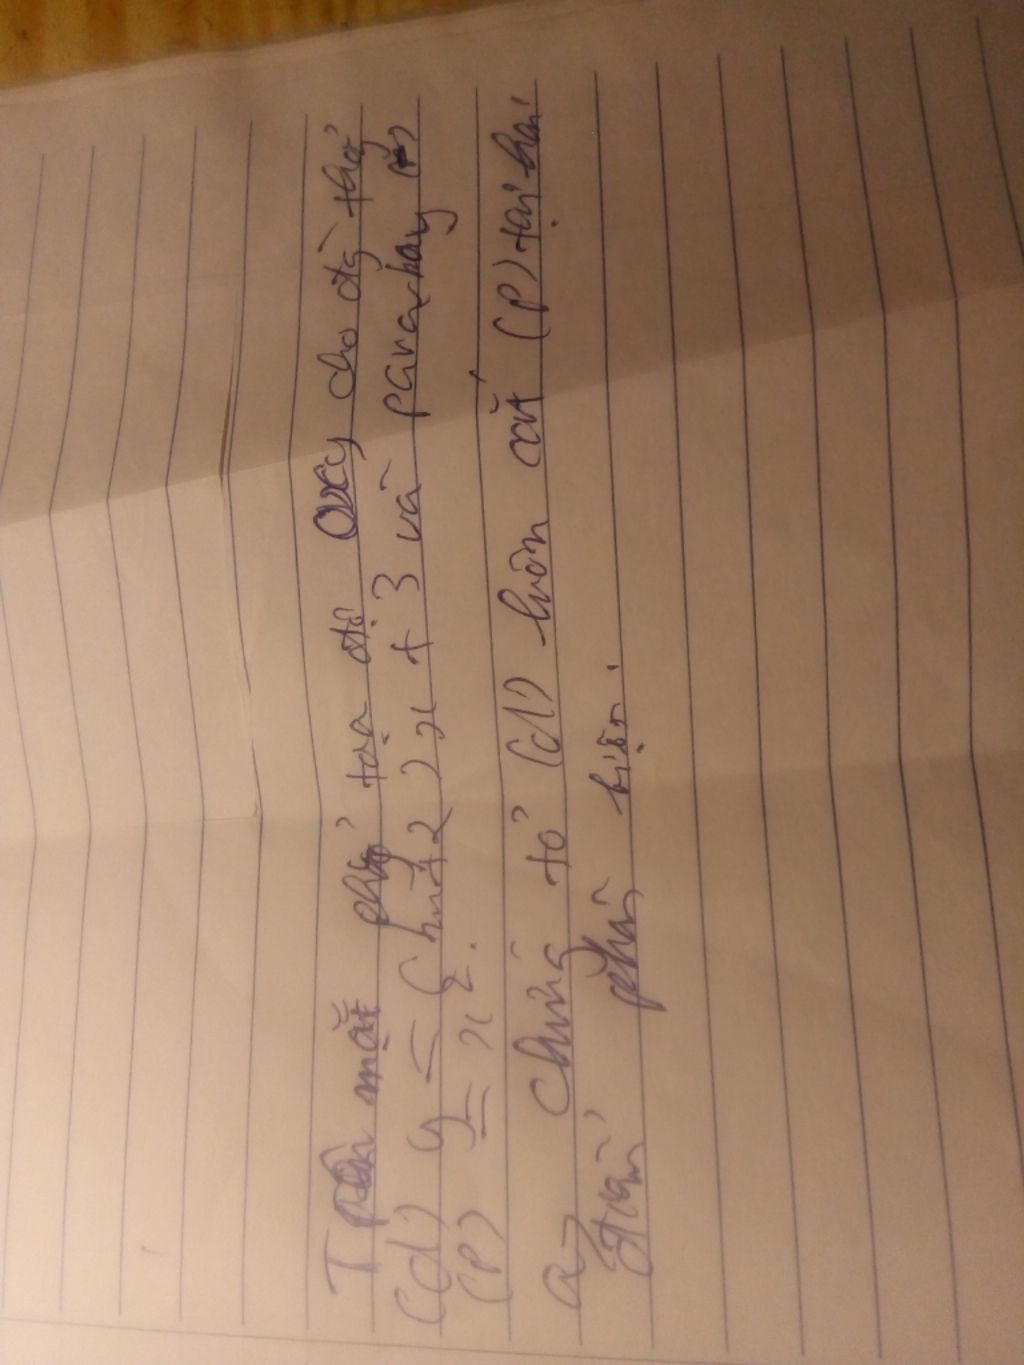 Trên mặt phẳng tọa độ Oxy cho đồ thị
(d) y = (m+2)x + 3 và parabay (P)
(P) y = x².
a, Chứng tỏ (d) luôn cắt (P) tại hai
điểm phân biệt.